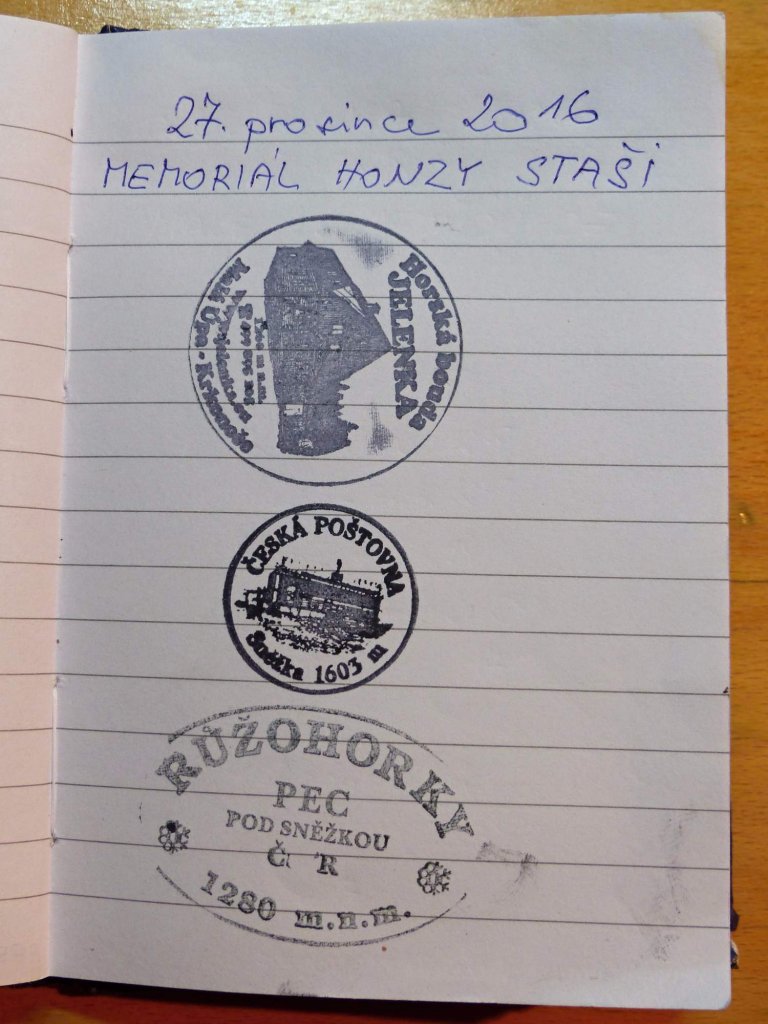 27. prosince 2016
MEMORIÁL HONZY STAŠI
Horská bouda
JELENKA
Malá Úpa - Krkonoše
ČESKÁ POŠTOVNA
Sněžka 1603 m
RŮŽOHORKY
PEC
POD SNĚŽKOU
ČR
1280 m.n.m.